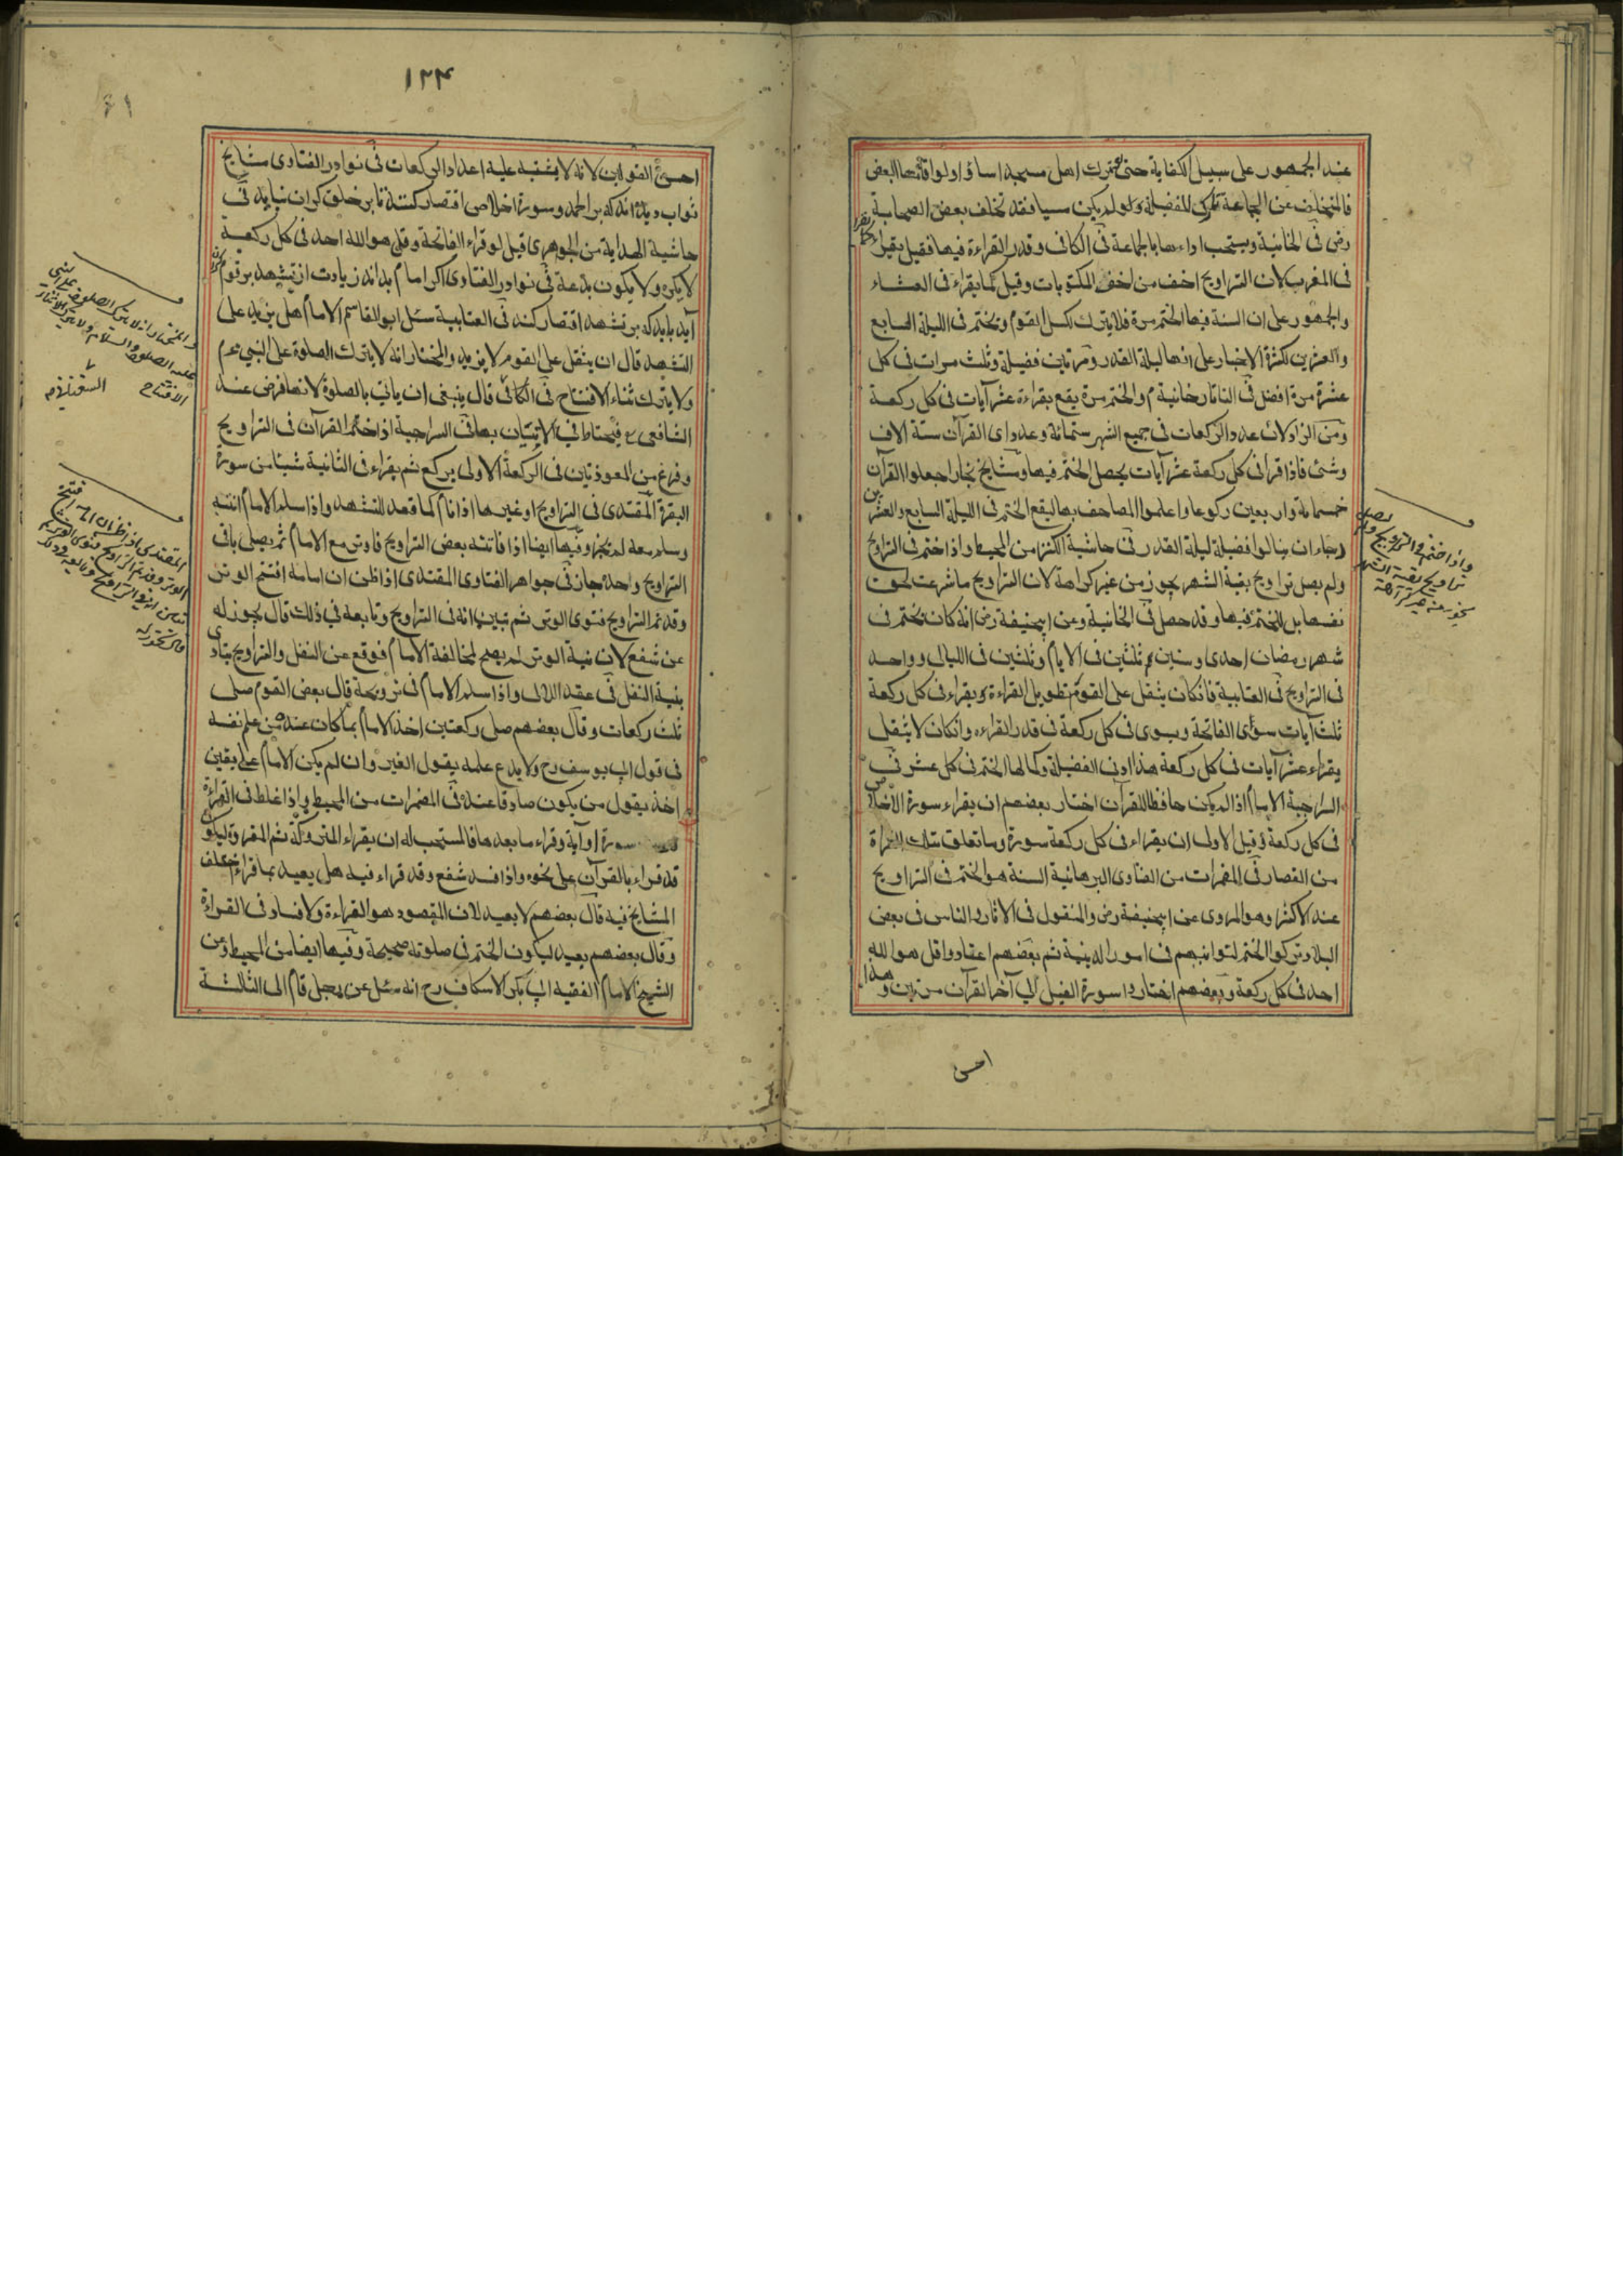 عند الجمهور على سبيل الكفاية حتى لو ترك اهل مسجد اساؤا ولو اقامها البعض
فالمتخلف عن الجماعة تارك للفضيلة ولم يكن مسيا فقد تخلف بعض الصحابة
رض فى الخانية ويستحب اداءها بالجماعة فى الكافى وقدر القراءة فيها فقيل يقراء كما يقراء
فى المغرب لان التراويح اخف من اخف المكتوبات وقيل كما يقراء فى العشاء
والجمهور على ان السنة فيها الختم مرة فلا يترك لكسل القوم ويختم فى الليلة السابع
والعشرين لكثرة الاخبار على انها ليلة القدر ومرتين فضيلة وثلث مرات فى كل
عشرة مرة افضل فى التاتارخانية م والختم مرة يقع بقراءة عشر آيات فى كل ركعة
ومن الزاد لان عدد الركعات فى جميع الشهر ستمائة وعدد اى القرآن ستة الاف
وشئ فاذا قرا فى كل ركعة عشر آيات يحصل الختم فيها ومشايخ بخارا جعلوا القرآن
خمسمائة واربعين ركوعا واعلموا المصاحف بها ليقع الختم فى الليلة السابع والعشرين
رجاء ان ينالوا فضيلة ليلة القدر فى حاشية الكنز من المحيط واذا ختم فى التراويح
ولم يصل تراويح بقية الشهر يجوز من غير كراهة لان التراويح ما شرعت لحق
نفسها بل للختم فيها وقد حصل فى الخانية وعن ابيحنيفة رض انه كان يختم فى
شهر رمضان احدى وستين م ثلثين فى الايام وثلثين فى الليالى وواحد
فى التراويح فى العتابية فانكان يثقل على القوم تطويل القراءة ويقراء فى كل ركعة
ثلث آيات سوى الفاتحة ويسوى فى كل ركعة فى قدر القراءه وانكان لا يثقل
يقراء عشر آيات فى كل ركعة هذا ادنى الفضيلة وكمالها الختم فى كل عشر فى
السراجية الامام اذا لم يكن حافظا للقرآن اختار بعضهم ان يقراء سورة الاخلاص
فى كل ركعة وقيل الاولى ان يقراء فى كل ركعة سورة وما تعلق بتلك القراءة
من القصار فى المضمرات من الفتاوى البرهانية السنة هو الختم فى التراويح
عند الاكثر وهو المروى عن ابيحنيفة رض والمنقول فى الاثار والناس فى بعض
البلاد تركوا الختم لتوانيهم فى امور الدينية ثم بعضهم اعتادوا قل هو الله
احد فى كل ركعة وبعضهم اختاروا سورة الفيل الى آخر القرآن مرتين وهذا
احسن
واذا ختم فى التراويح ولم يصل
تراويح بقية الشهر
يجوز من غير كراهة
١٢٤
احسن القولين لانه لا يشتبه عليه اعداد الركعات فى نوادر الفتاوى مشايخ
ثواب ديده اند كه بر الحمد وسورة اخلاص اقتصار كنند تا بر خلق كران نيايد فى
حاشية الهداية من الجوهرى قيل لو قراء الفاتحة وقل هو الله احد فى كل ركعة
لا يكره ولا يكون بدعة فى نوادر الفتاوى اكر امام بداند زيادت از تشهد بر قوم كران
آيد بايد كه بر تشهد اقتصار كند فى العتابية سئل ابو القاسم الامام هل يزيد على
التشهد قال ان يثقل على القوم لا يزيد والمختار انه لا يترك الصلوة على النبى عم
ولا يترك ثناء الافتتاح فى الكافى قال ينبغى ان ياتى بالصلوة لانها فرض عند
الشافعى ع فيحتاط فى الاتيان بها فى السراجية اذا ختم القرآن فى التراويح
وفرغ من المعوذتين فى الركعة الاولى يركع ثم يقراء فى الثانية شيئا من سورة
البقرة المقتدى فى التراويح او غيرها اذا نام كما قعد للتشهد واذا سلم الامام انتبه
وسلم معه لم يجز وفيها ايضا اذا فاتته بعض التراويح فاوتر مع الامام ثم يصلى باقى
التراويح واحدة جاز فى جواهر الفتاوى المقتدى اذا ظن ان امامه افتتح الوتر
وقد تم التراويح فنوى الوتر ثم تبين انه فى التراويح وتابعه فى ذلك قال يجوز له
عن شفع لان نية الوتر لم يصح لمخالفة الامام فوقع عن النفل والتراويح يتادى
بنية النفل فى عقد اللالى واذا سلم الامام فى ترويحة قال بعض القوم صلى
ثلث ركعات وقال بعضهم صلى ركعتين اخذ الامام بما كان عنده من علم نفسه
فى قول ابى يوسف رح ولا يدع علمه بقول الغير وان لم يكن الامام على يقين
اخذ بقول من يكون صادقا عنده فى المضمرات من المحيط واذا غلط فى القراءة
سورة او آية وقراء ما بعدها فالمستحب له ان يقراء المتروكة ثم المقروة ليكون
قد قراء بالقرآن على نحوه واذا فسد شفع وقد قراء فيه هل يعيد بما قراء اختلف
المشايخ فيه قال بعضهم لا يعيد لان المقصود هو القراءة ولا فساد فى القراءة
وقال بعضهم يعيد ليكون الختم فى صلوته صحيحة وفيها ايضا من المحيط وعن
الشيخ الامام الفقيه ابى بكر الاسكاف رح انه سئل عن رجل قام الى الثالثة
والمختار انه لا يترك الصلوة على النبى
عليه الصلوة والسلام ولا يترك الثناء
الافتتاح
المقتدى اذا ظن ان امامه افتتح
الوتر وقد تم التراويح فنوى الوتر ثم